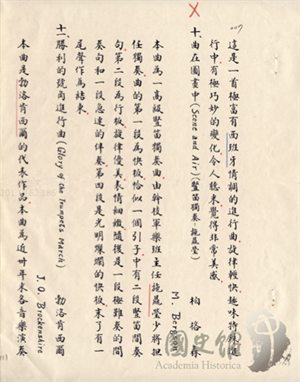 007
這是一首極富有西班牙情調的進行曲旋律輕快趣味特殊進
行中有極巧妙的變化令人聽來覺得非常美感
十、曲在圖畫中(Scene and Air)(豎笛獨奏:施晟瑩) 柏洛春
M. Bergson
本曲為一高級豎笛獨奏曲由幹技軍樂班主任施晟瑩少將担
任獨奏曲的第一段為快板恰似一個引子中有二段豎笛間奏
句第二段為行板旋律優美表情細緻隨後是一段極難奏的間
奏句和一段急速的伴奏第四段是光明燦爛的快板末了有一
尾聲作為結束
十一、勝利的號角進行曲(Glory of the Trumpets March) 勃洛肯西爾
J. O. Brockenshire
本曲是勃洛肯西爾的代表作品本曲為近卅年來各音樂演奏
國史館
Academia Historica